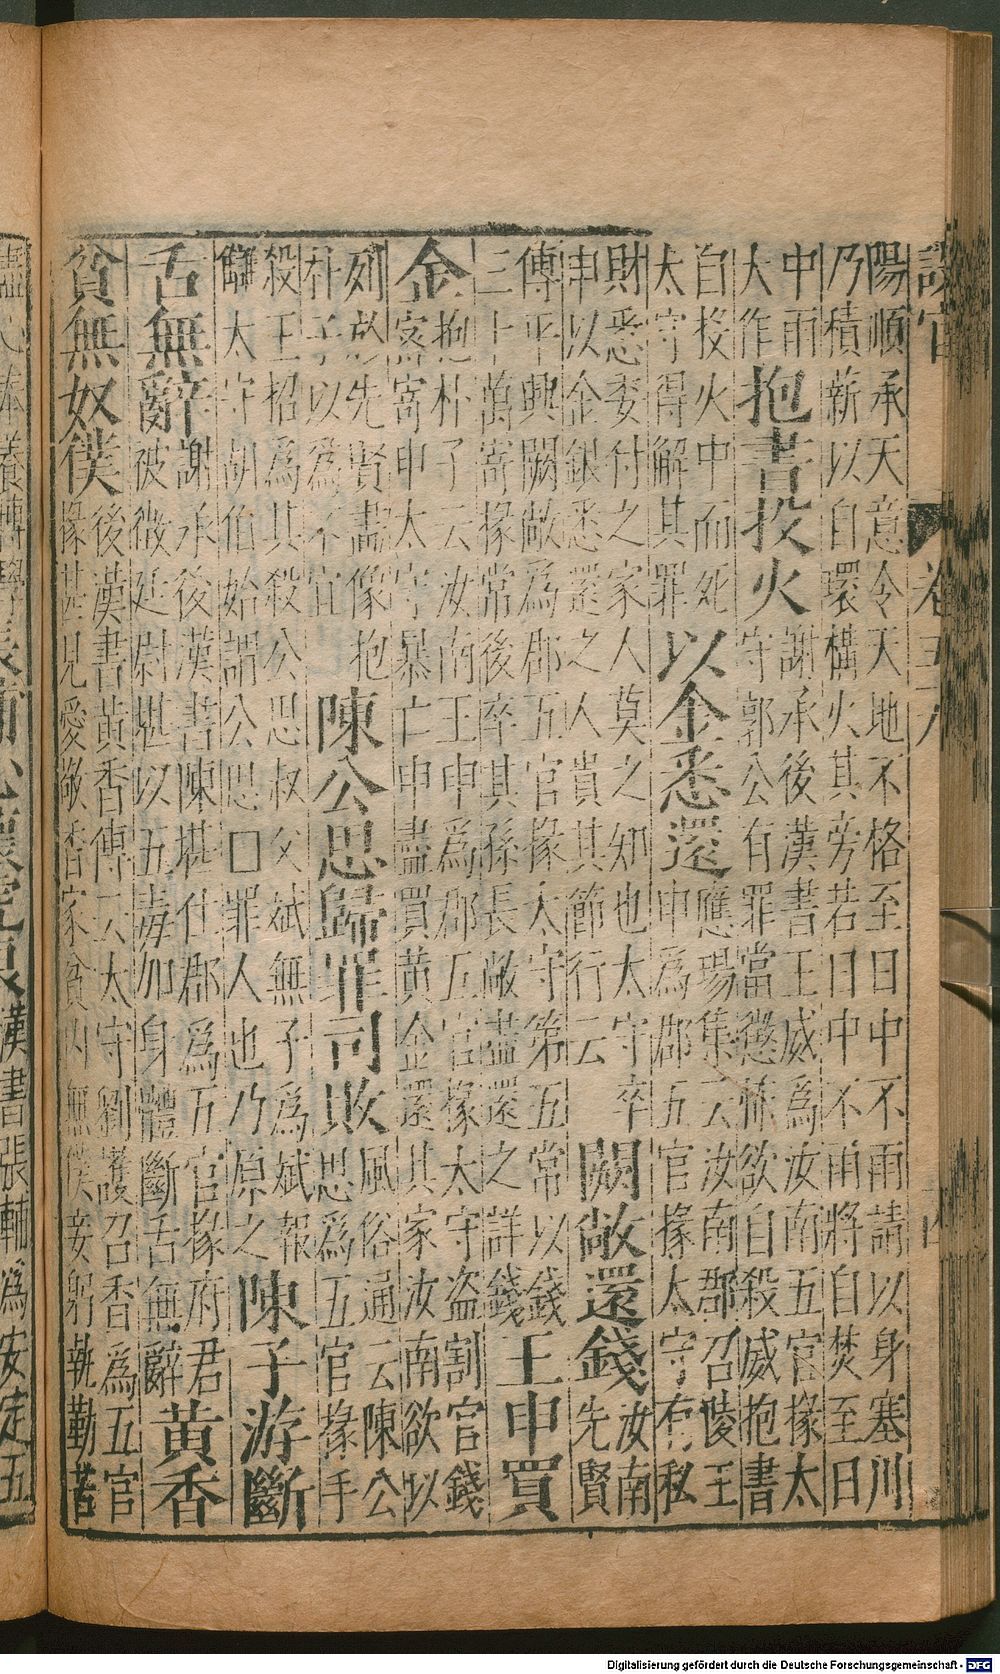 陽順承天意令天地不格至日中不雨請以身塞川
乃積薪以自環構火其旁若日中不雨將自焚至日
中雨
大作
抱書投火
謝承後漢書王威為汝南五官掾太
守郭公有罪當懲怖欲自殺威抱書
自投火中而死
太守得解其罪
以金悉還
應瑒集云汝南郡召陵王
申為郡五官掾太守有私
財悉委付之家人莫之知也太守卒
申以金銀悉還之人貴其節行云
闕敞還錢
汝南
先賢
傳平輿闕敞為郡五官掾太守第五常以錢
三十萬寄掾常後卒其孫長敞盡還之詳錢
王申買
金
抱朴子云汝南王申為郡五官掾太守盜割官錢
客寄申太守暴亡申盡買黃金還其家汝南欲以
列於先賢畫像抱
朴子以為不宜
陳公思歸罪司敗
風俗通云陳公
思為五官掾手
殺王招為其殺公思叔父斌無子為斌報
讎太守胡伯始謂公思□罪人也乃原之
陳子游斷
舌無辭
謝承後漢書陳堪仕郡為五官掾府君
被徵廷尉堪以五毒加身體斷舌無辭
黃香
貧無奴僕
後漢書黃香傳云太守劉護召香為五官
掾甚見愛敬香家貧內無僕妾躬執勤苦
漢書張輔為安定五
Digitalisierung gefördert durch die Deutsche Forschungsgemeinschaft - DFG